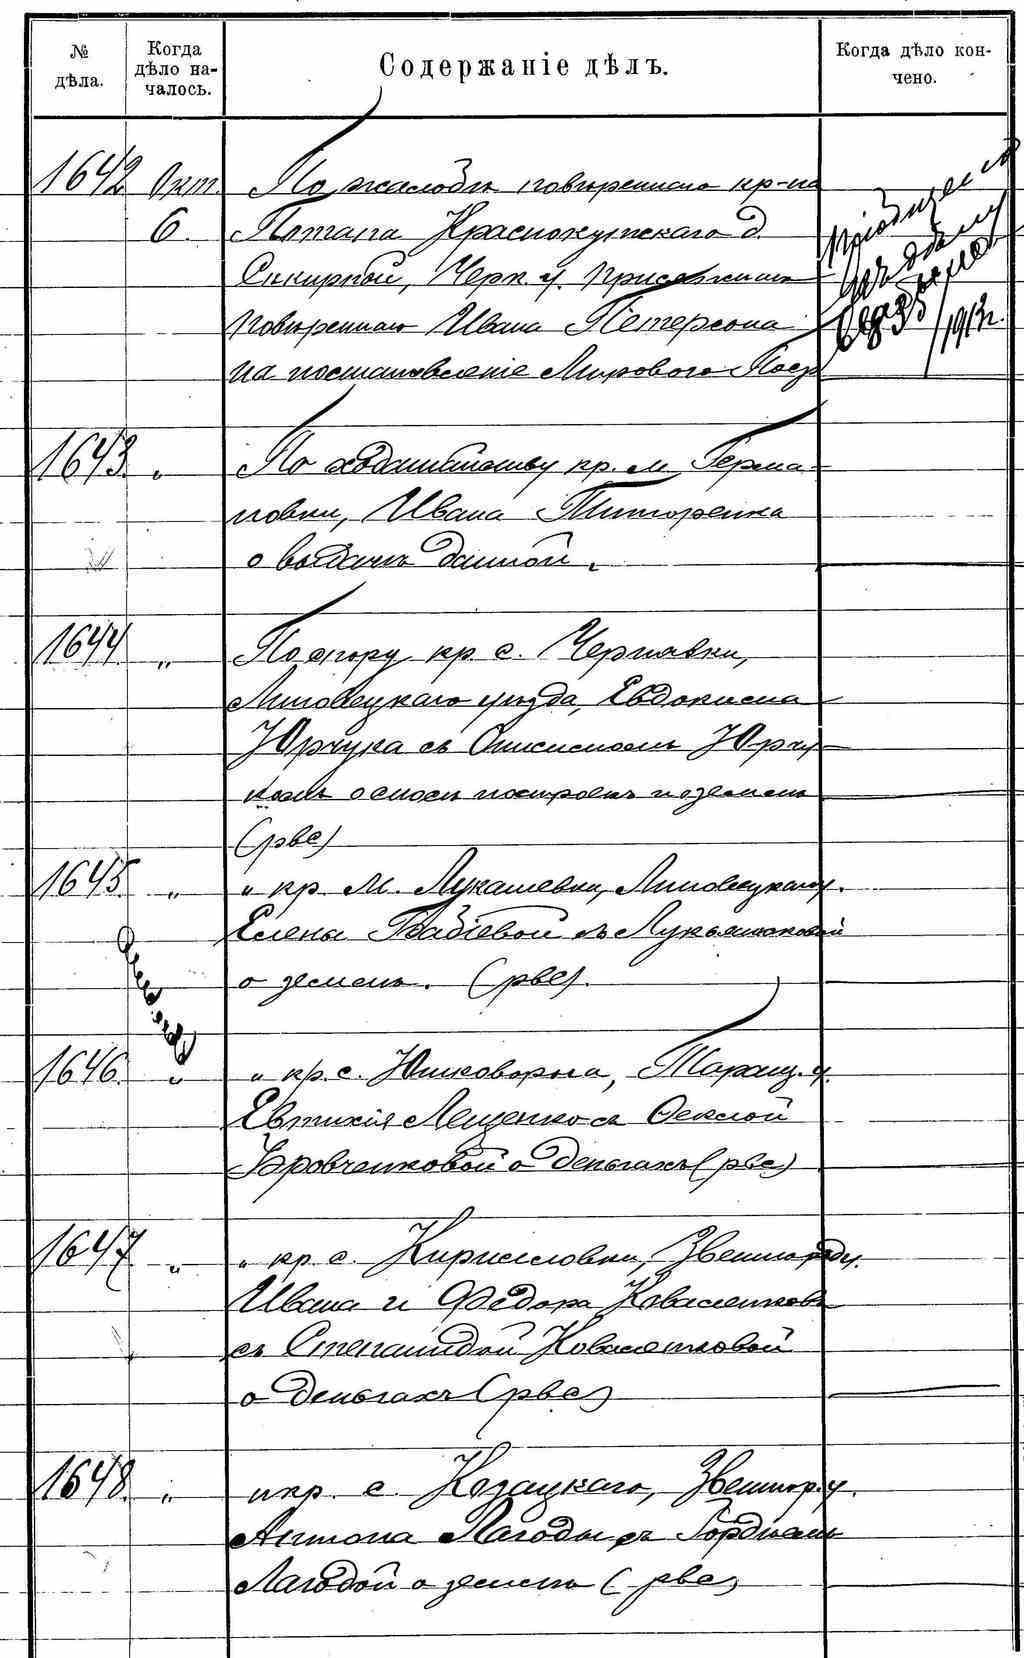 № дѣла.
Когда дѣло на-
чалось.
Содержаніе дѣлъ.
Когда дѣло кон-
чено.
1642 Окт. По жалобѣ повѣреннаго кр-на
6. Потапа Краснокутскаго д.
Черк. у. присяжнаго
повѣреннаго Ивана Петерсона
на постановленіе Мирового Поср
пріобщено
къ дѣлу
1913 г.
1643 „ По ходатайству кр. м. Герма-
новки, Ивана Титаренка
о выдачѣ данной.
1644 „ По спору кр. с. Чернавки,
Липовецкаго уѣзда, Евдокима
Юрчука съ Онисимомъ Юрчу-
комъ о сносѣ построекъ и о землѣ
(рвс)
1645 „ „ кр. м. Лукашевки, Липовецкаго у.
Елены Бабіевой съ Лукьянюковой
о землѣ. (рвс).
1646 „ „ кр. с. Юшковорога, Таращ. у.
Евтихія Лещенко съ Феклой
Бровченковой о деньгахъ (рвс)
1647 „ „ кр. с. Кирилловки, Звенигород у.
Ивана и Федора Коваленковъ
съ Степанидой Коваленковой
о деньгахъ (рвс)
1648 „ „ кр. с. Козацкаго, Звенигор. у.
Антона Лагоды съ Гордіемъ
Лагодой о землѣ (рвс)